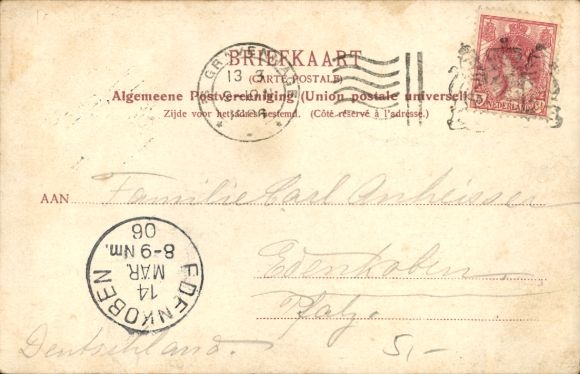 BRIEFKAART
(CARTE POSTALE)
Algemeene Postvereeniging (Union postale universelle)
Zijde voor het adres bestemd. (Côté réservé à l'adresse.)
'S GRAVENHAGE
13 3
NEDERLAND
5
AAN Familie Carl Anheisser
Edenkoben
Pfalz.
Deutschland.
5,-
EDENKOBEN
14
MAR
8-9 Nm.
06